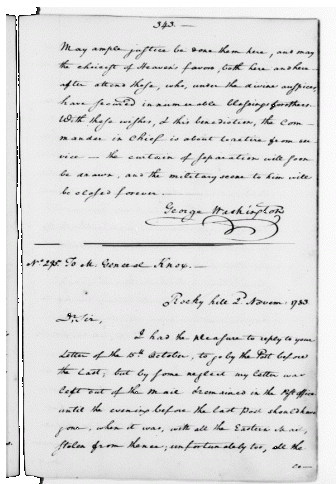 343.
May ample justice be done them here, and may
the choicest of Heaven's favors, both here and here-
after attend those, who, under the devine auspices,
have secured innumerable blessings for others.
With these wishes, & this benediction, the Com-
mander in Chief is about to retire from ser-
vice — the curtain of separation will soon
be drawn, and the military scene to him will
be closed forever —
George Washington
To M. General Knox. —
Rocky hill 2d Novem. 1783
Dr Sir,
I had the pleasure to reply to your
Letter of the 15th October, to go by the Post before
the Last; but by some neglect my letter was
left out of the Mail & remained in the Post office
until the evening before the last Post should have
gone, when it was, with all the Eastern Mail,
stolen from thence; unfortunately too, all the
co—